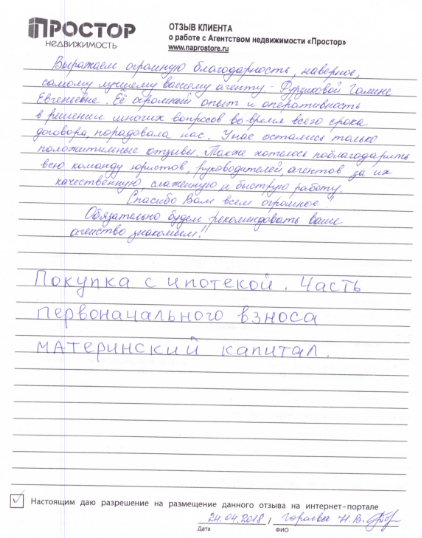 ПРОСТОР
НЕДВИЖИМОСТЬ
ОТЗЫВ КЛИЕНТА
о работе с Агентством недвижимости «Простор»
www.naprostore.ru
Выражаем огромную благодарность, наверное,
самому лучшему вашему агенту - Галине
Евгеньевне. Её огромный опыт и оперативность
в решении многих вопросов во время всего срока
договора порадовала нас. У нас остались только
положительные отзывы. Также хотелось поблагодарить
всю команду юристов, руководителей, агентов за их
качественную слаженную и быструю работу.
Спасибо Вам всем огромное
Обязательно будем рекомендовать ваше
агенство знакомым!!
Покупка с ипотекой. Часть
первоначального взноса
материнский капитал.
Настоящим даю разрешение на размещение данного отзыва на интернет-портале
24.04.2018 / Н.В.
Дата ФИО